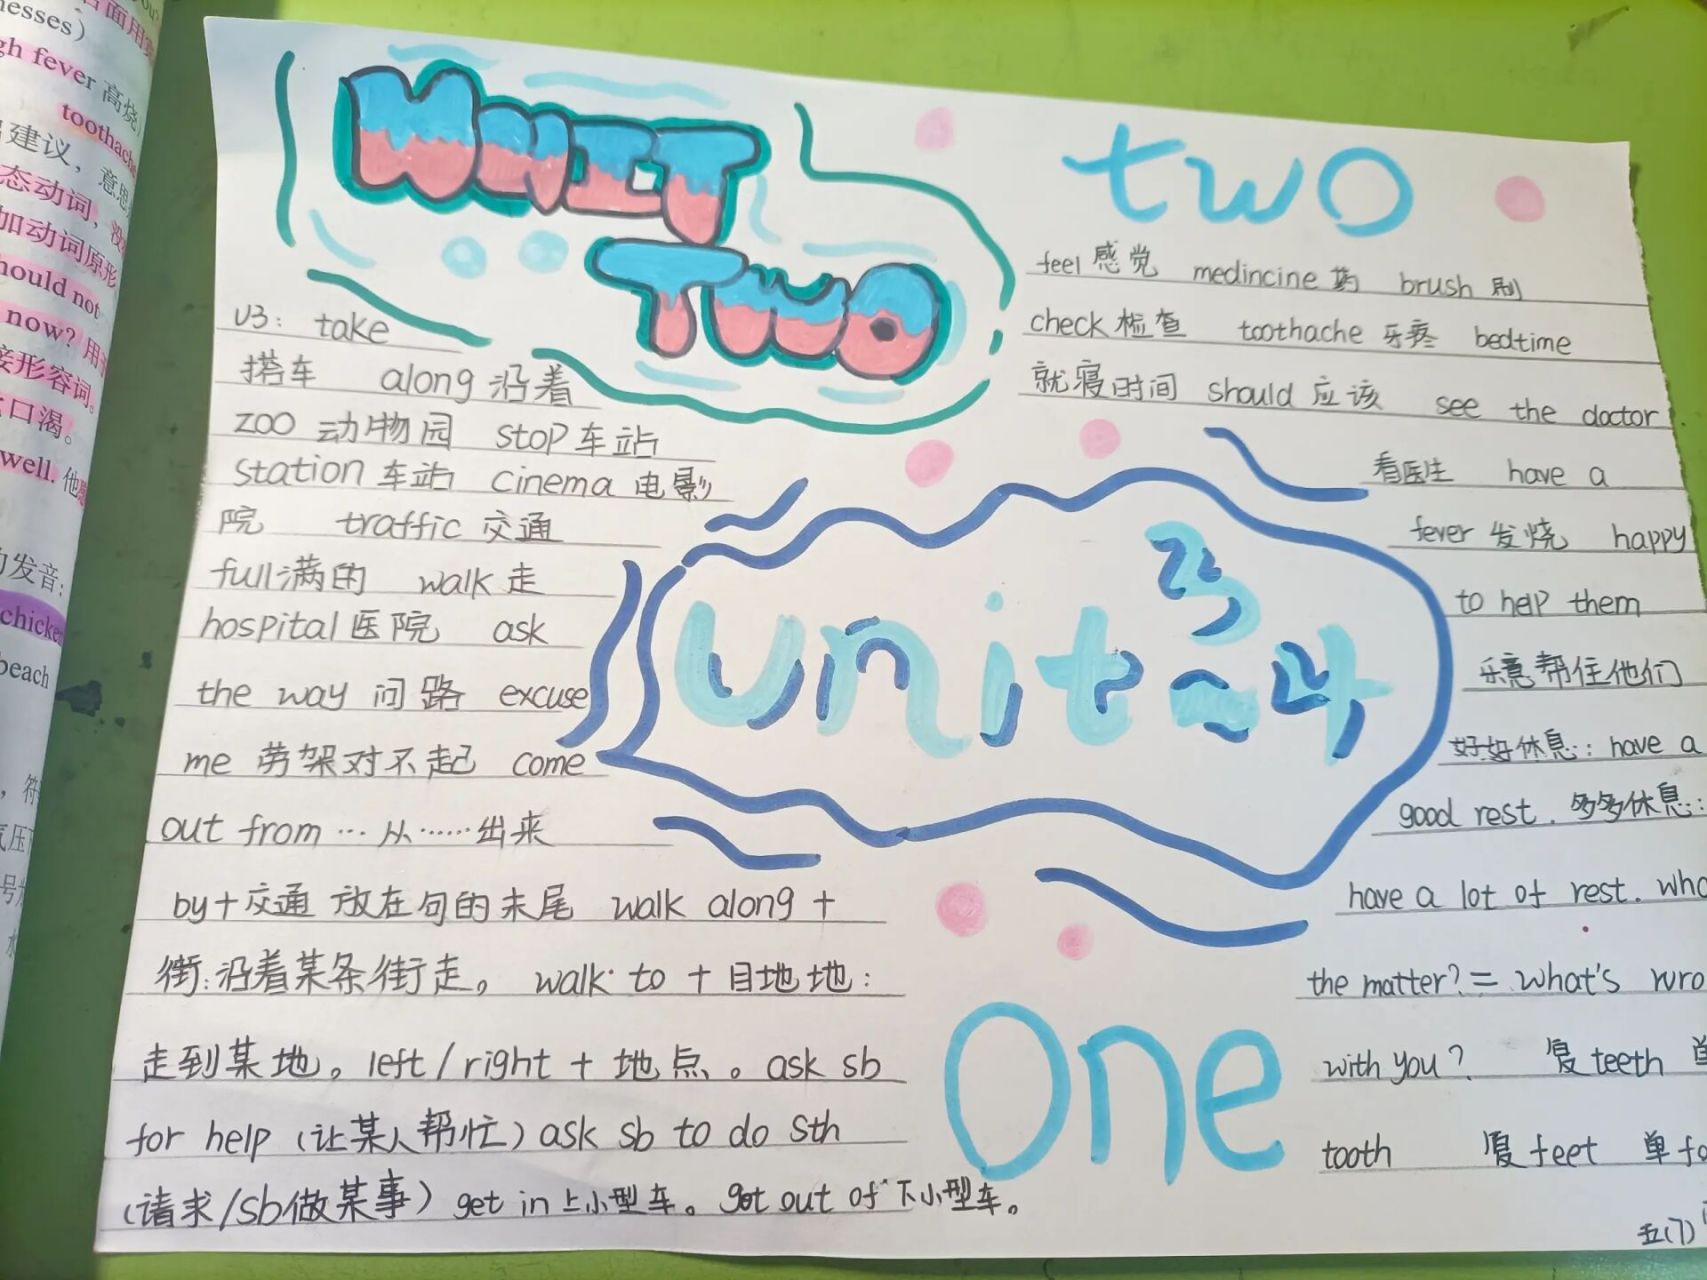 nesses)
gh fever 高烧
toothache
建议，意思
态动词，没
加动词原形
hould not
now? 用
接形容词。
口渴。
well. 他
发音：
chicken
beach
UNIT
TWO
U3: take
搭车 along 沿着
zoo 动物园 stop 车站
station 车站 cinema 电影
院 traffic 交通
full 满的 walk 走
hospital 医院 ask
the way 问路 excuse
me 劳驾对不起 come
out from … 从……出来
by+交通 放在句的末尾 walk along +
街:沿着某条街走。 walk to + 目地地：
走到某地。left/right + 地点。ask sb
for help (让某人帮忙) ask sb to do sth
(请求/sb做某事) get in 上小型车。get out of 下小型车。
unit 3~4
two
feel 感觉 medincine 药 brush 刷
check 检查 toothache 牙疼 bedtime
就寝时间 should 应该 see the doctor
看医生 have a
fever 发烧 happy
to help them
乐意帮住他们
好好休息：have a
good rest. 多多休息：
have a lot of rest. wha
the matter? = what's wro
with you? 复 teeth 单
tooth 复 feet 单 fo
One
五(7)